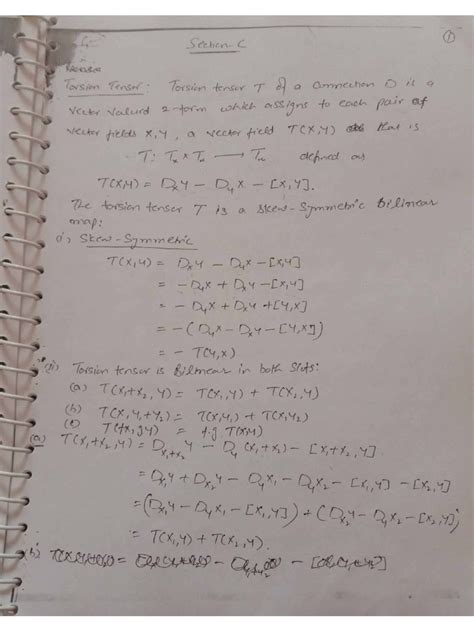 ①
Section C
Torsion Tensor: Torsion tensor T of a connection D is a
vector valued 2-form which assigns to each pair of
vector fields X, Y, a vector field T(X,Y) that is
T: Tₘ × Tₘ ⟶ Tₘ defined as
T(X,Y) = D_X Y − D_Y X − [X,Y].
The torsion tensor T is a Skew-Symmetric Bilinear
map:
i) Skew-Symmetric
T(X,Y) = D_X Y − D_Y X − [X,Y]
= −D_Y X + D_X Y − [X,Y]
= −D_Y X + D_X Y + [Y,X]
= −(D_Y X − D_X Y − [Y,X])
= − T(Y,X)
(ii) Torsion tensor is Bilinear in both Slots:
(a) T(X₁+X₂, Y) = T(X₁,Y) + T(X₂,Y)
(b) T(X, Y₁+Y₂) = T(X,Y₁) + T(X,Y₂)
(c) T(fX, gY) = f.g T(X,Y)
(a) T(X₁+X₂, Y) = D_{X₁+X₂} Y − D_Y (X₁+X₂) − [X₁+X₂, Y]
= D_{X₁} Y + D_{X₂} Y − D_Y X₁ − D_Y X₂ − [X₁,Y] − [X₂,Y]
= (D_{X₁} Y − D_Y X₁ − [X₁,Y]) + (D_{X₂} Y − D_Y X₂ − [X₂,Y])
= T(X₁,Y) + T(X₂,Y).